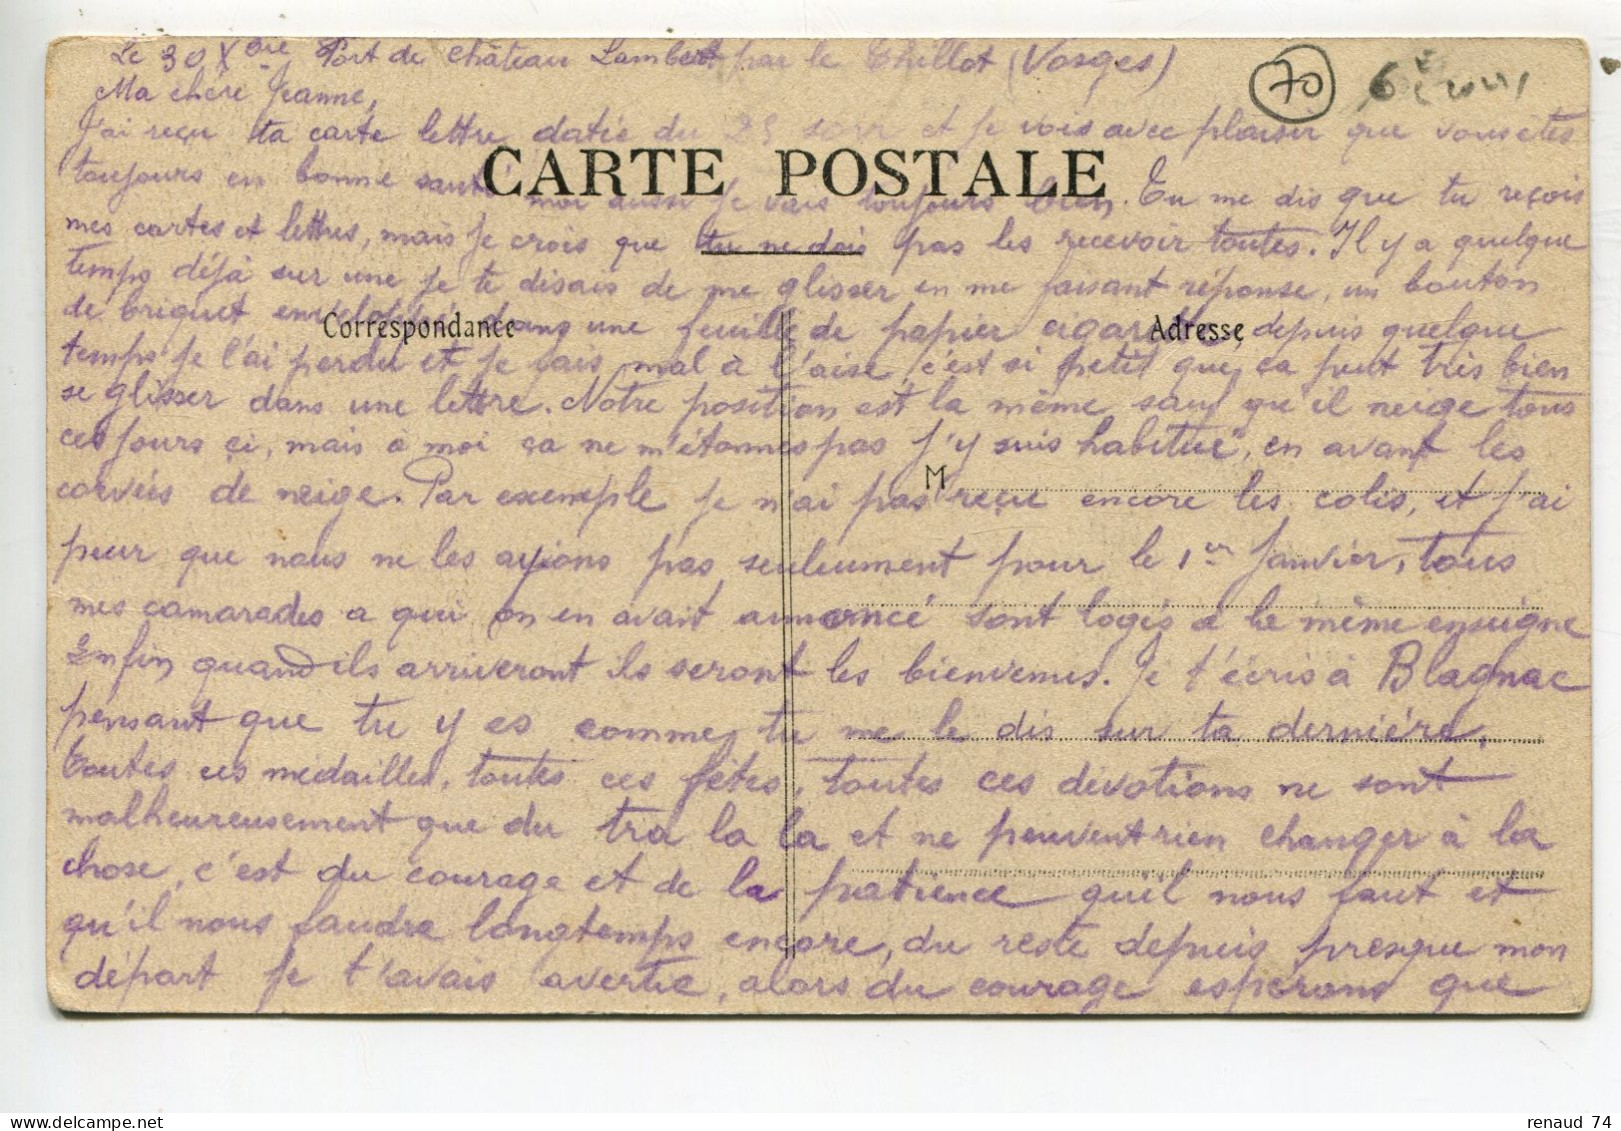 Le 30 Xbre Port de Château Lambert par le Thillot (Vosges)
70
Ma chère Jeanne,
J'ai reçu ta carte lettre datée du 25 et je vois avec plaisir que vous êtes
CARTE POSTALE
toujours en bonne santé moi aussi je vais toujours bien. Tu me dis que tu reçois
mes cartes et lettres, mais je crois que tu ne dois pas les recevoir toutes. Il y a quelque
temps déjà sur une je te disais de me glisser en me faisant réponse, un bouton
de briquet enveloppé dans une feuille de papier cigarette, depuis quelque
Correspondance
Adresse
temps je l'ai perdu et je suis mal à l'aise, c'est si petit que ça peut très bien
se glisser dans une lettre. Notre position est la même sauf qu'il neige tous
ces jours ci, mais à moi ça ne m'étonnes pas j'y suis habitué, en avant les
M
corvées de neige. Par exemple je n'ai pas reçu encore les colis, et j'ai
peur que nous ne les ayions pas seuleument pour le 1er Janvier, tous
mes camarades a qui on en avait annoncé sont logés à la même enseigne
Enfin quand ils arriveront ils seront les bienvenus. Je t'écris à Blagnac
pensant que tu y es comme tu me le dis sur ta dernière,
toutes ces médailles, toutes ces fêtes, toutes ces dévotions ne sont
malheureusement que du tra la la et ne peuvent rien changer à la
chose, c'est du courage et de la patience qu'il nous faut et
qu'il nous faudra longtemps encore, du reste depuis presque mon
départ je t'avais avertie, alors du courage espérons que
renaud 74